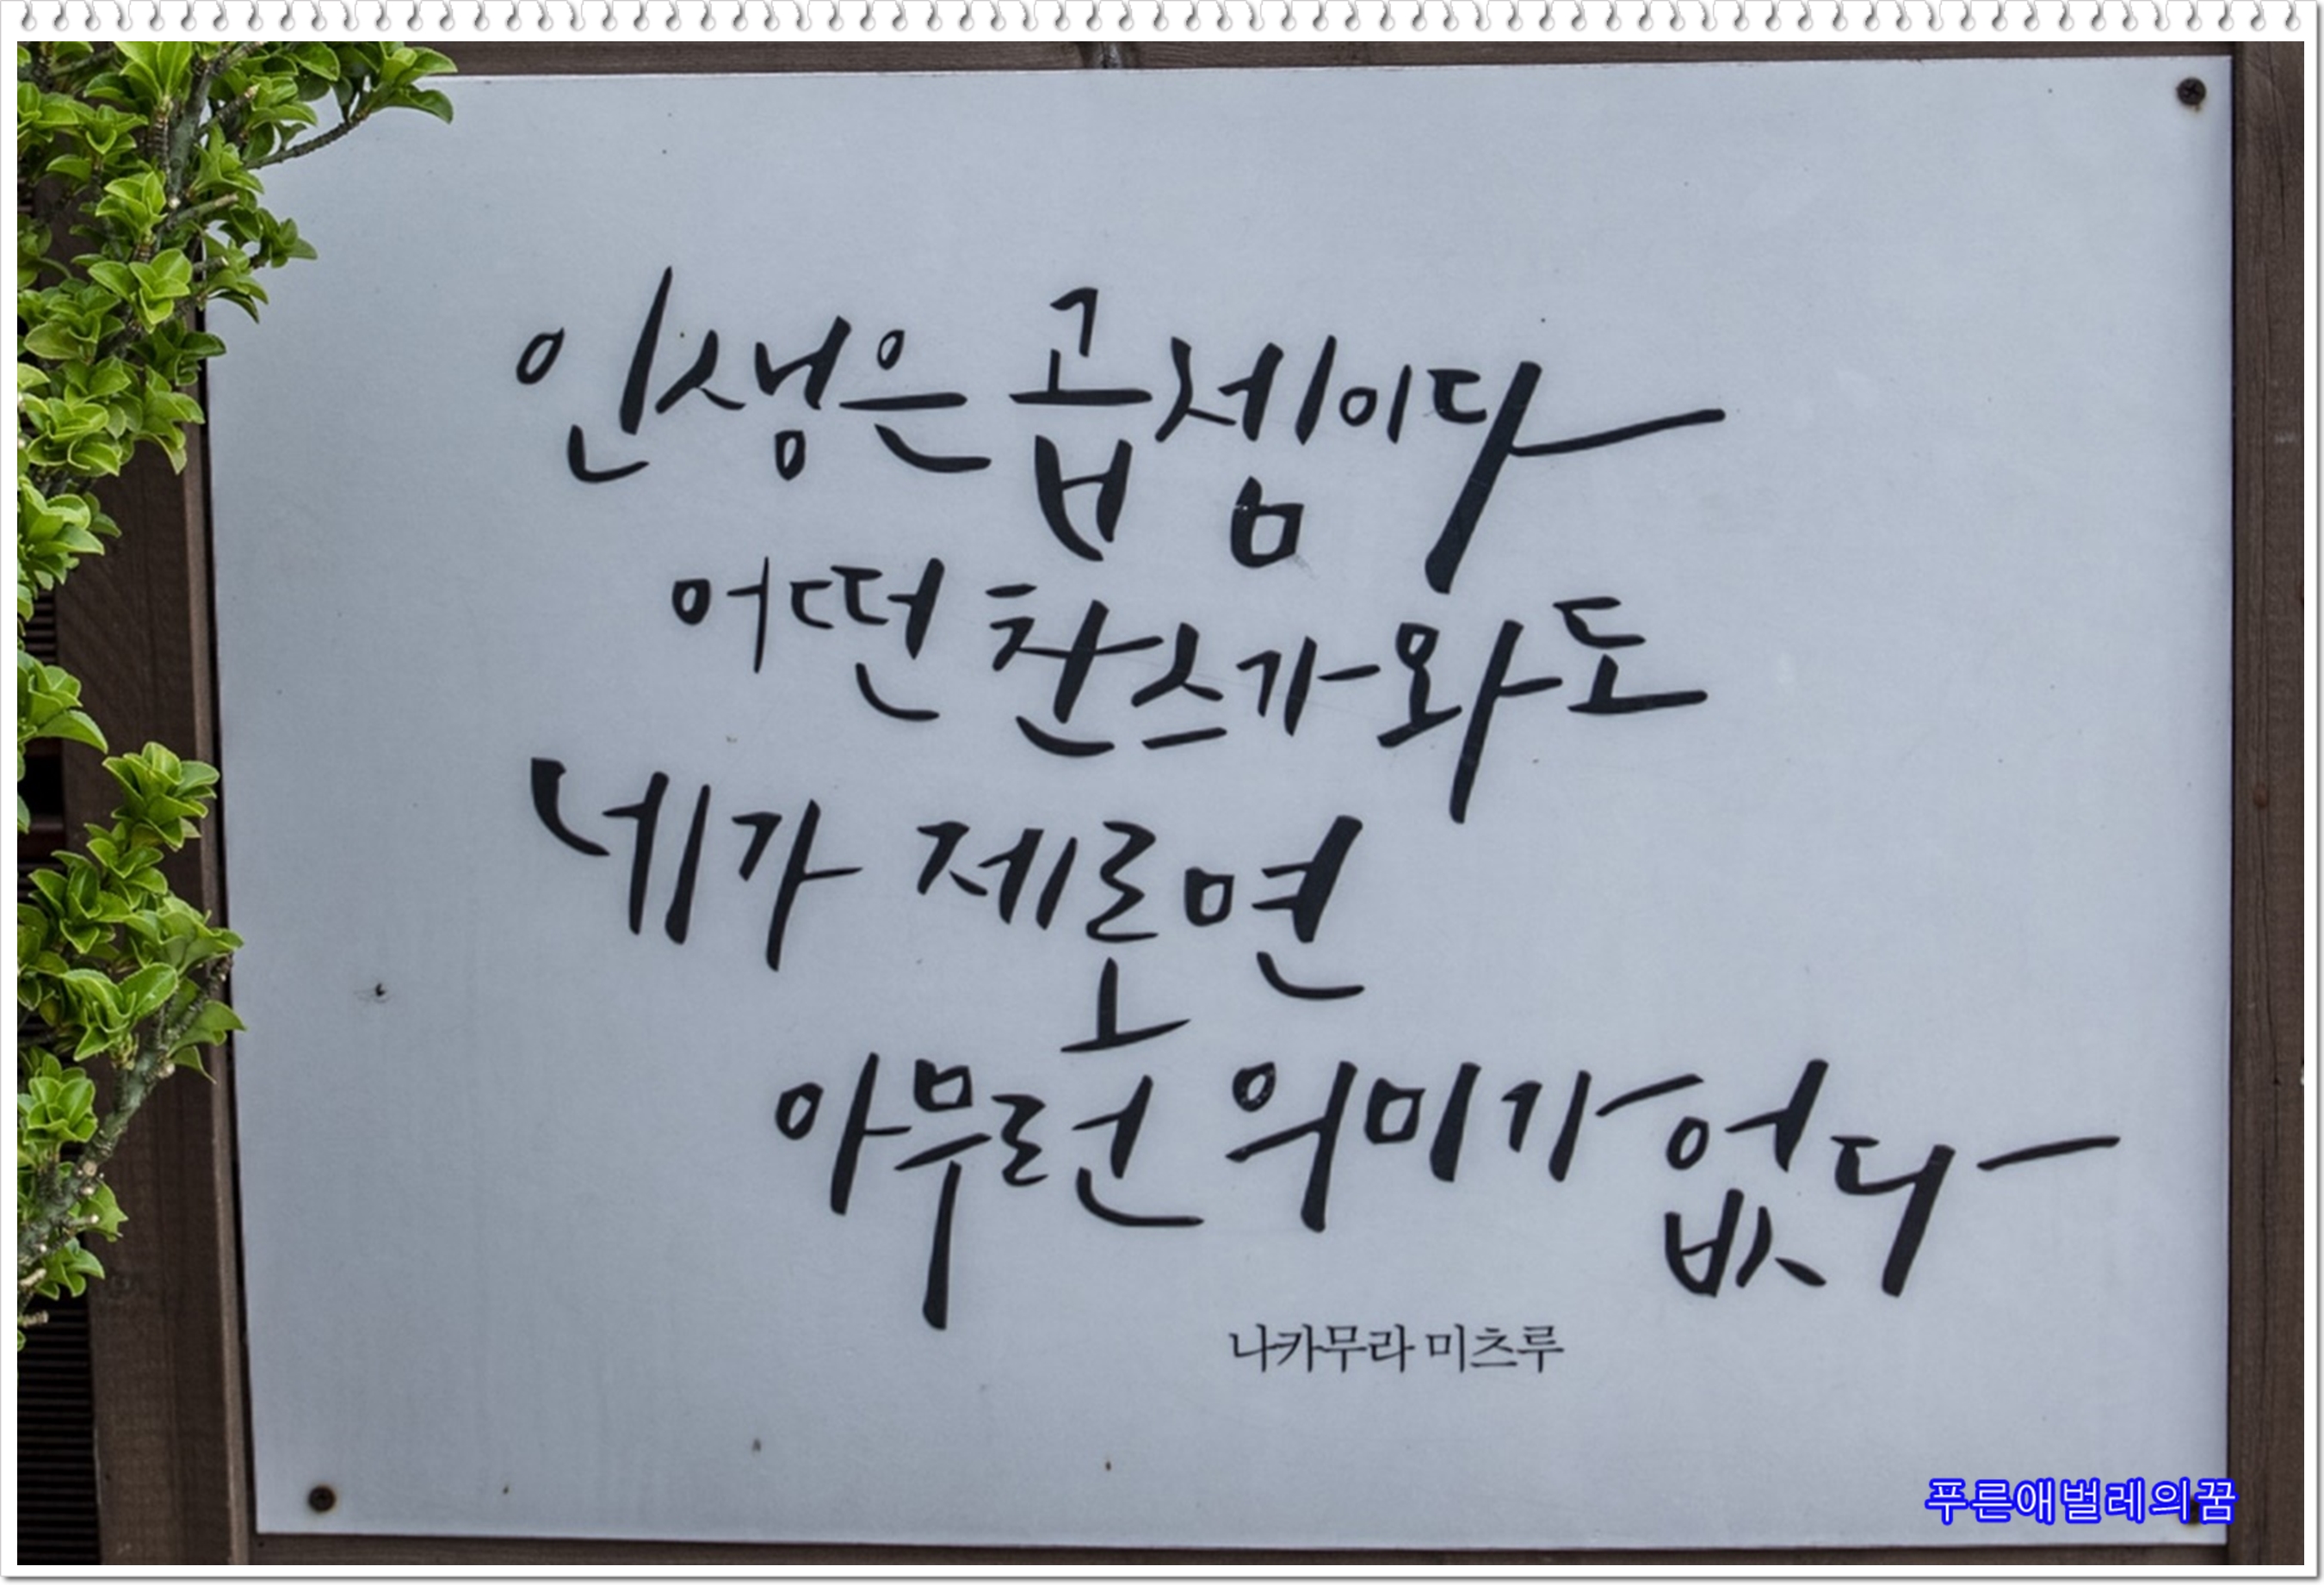 인생은 곱셈이다
어떤 찬스가 와도
네가 제로면
아무런 의미가 없다
나카무라 미츠루
푸른애벌레의꿈